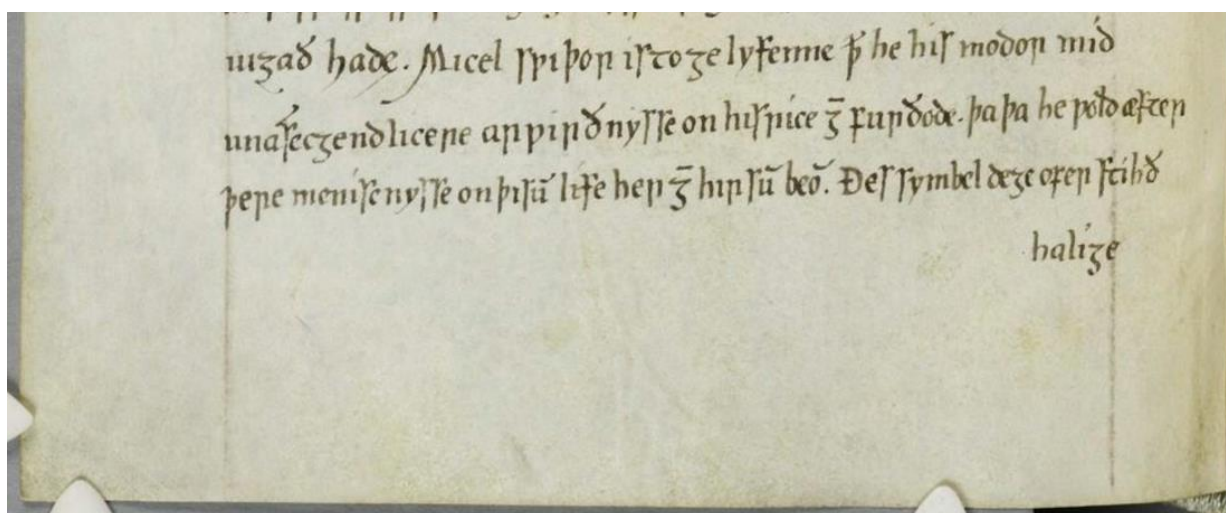 iugað hade. Micel sƿiþor is to ge lyfenne ꝥ he his modor mid
unasecgend licere arƿirðnysse on his rice ḡ furðode. þa þa he ƿold æfter
þere menisc nysse on þisū life her ḡ hir sū beō. Ðes symbel dege ofer stihð
halige